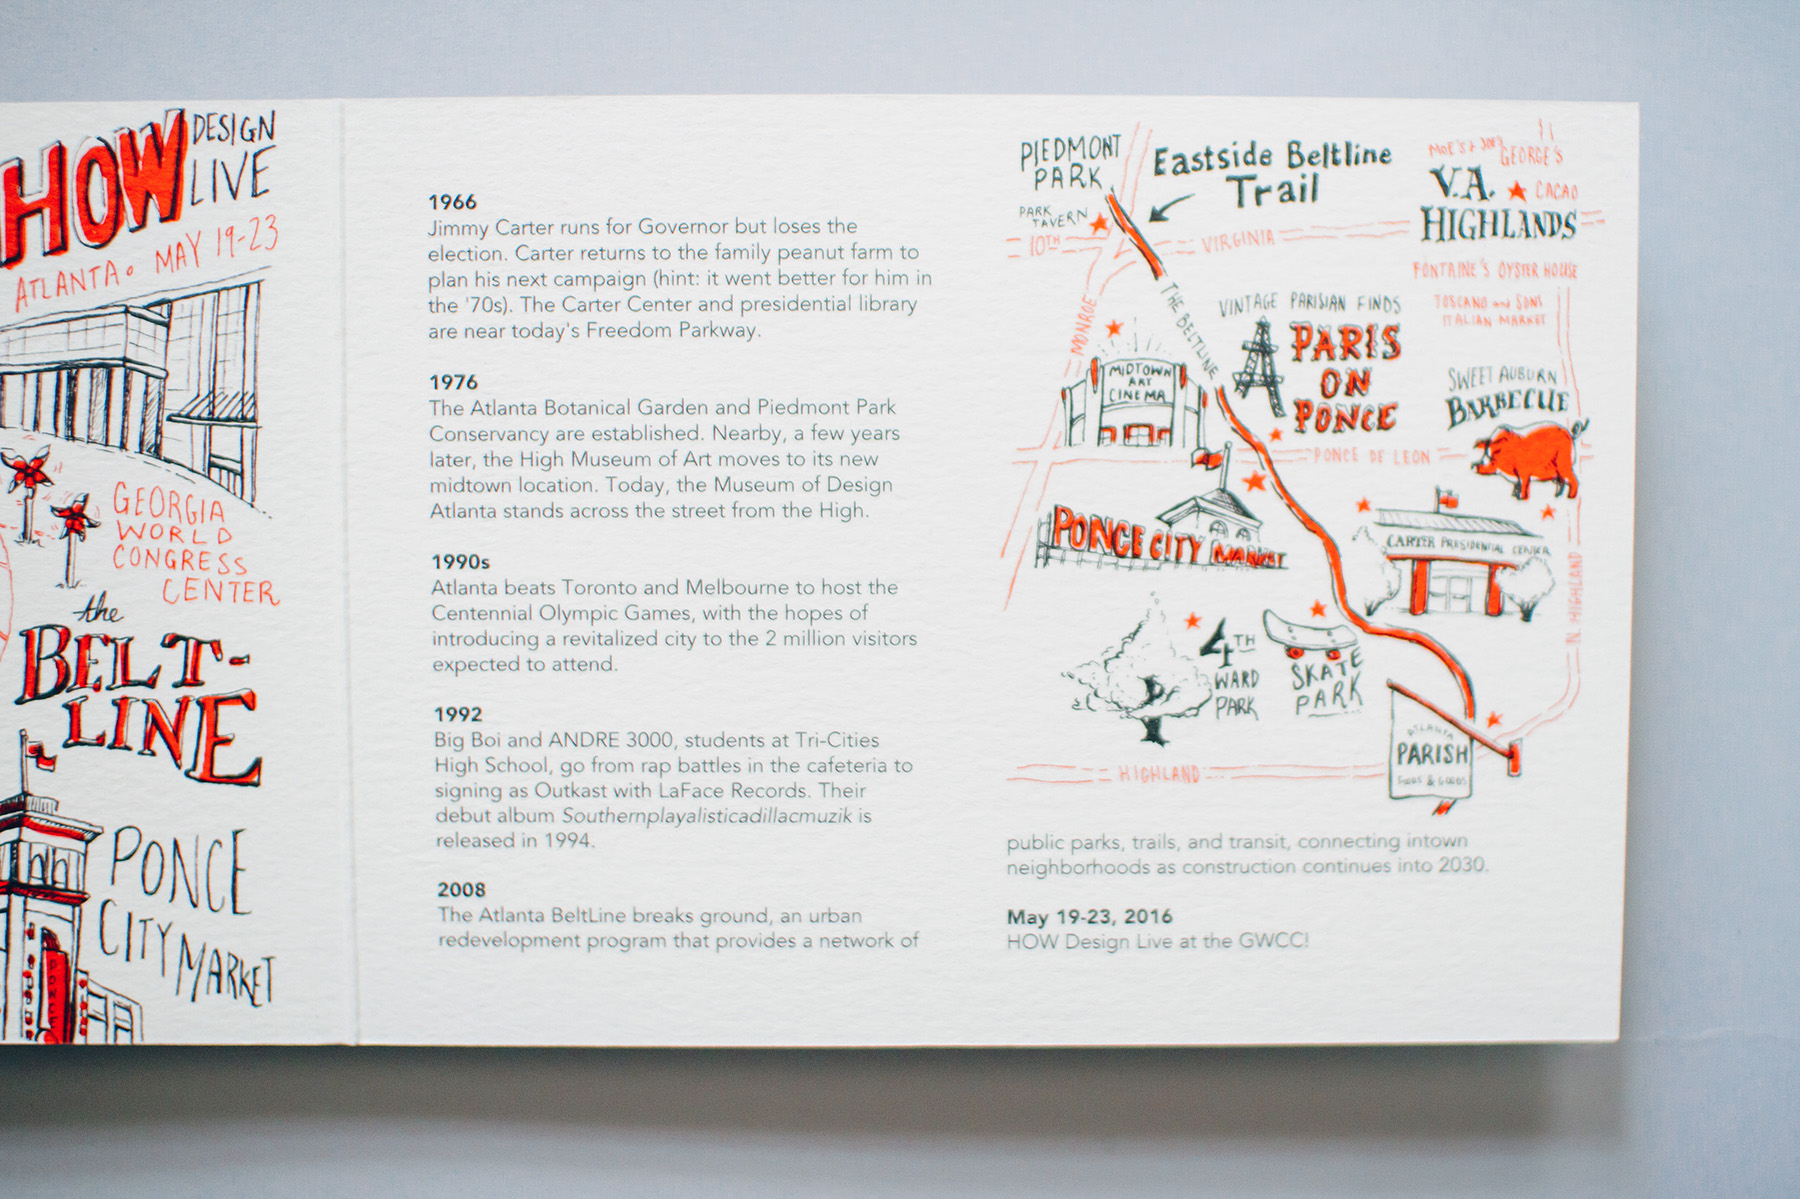 HOW DESIGN
LIVE
ATLANTA • MAY 19-23
GEORGIA
WORLD
CONGRESS
CENTER
the
BELT-
LINE
PONCE
CITY
MARKET
1966
Jimmy Carter runs for Governor but loses the
election. Carter returns to the family peanut farm to
plan his next campaign (hint: it went better for him in
the '70s). The Carter Center and presidential library
are near today's Freedom Parkway.
1976
The Atlanta Botanical Garden and Piedmont Park
Conservancy are established. Nearby, a few years
later, the High Museum of Art moves to its new
midtown location. Today, the Museum of Design
Atlanta stands across the street from the High.
1990s
Atlanta beats Toronto and Melbourne to host the
Centennial Olympic Games, with the hopes of
introducing a revitalized city to the 2 million visitors
expected to attend.
1992
Big Boi and ANDRE 3000, students at Tri-Cities
High School, go from rap battles in the cafeteria to
signing as Outkast with LaFace Records. Their
debut album Southernplayalisticadillacmuzik is
released in 1994.
2008
The Atlanta BeltLine breaks ground, an urban
redevelopment program that provides a network of
PIEDMONT
PARK
Eastside Beltline
Trail
PARK
TAVERN
10TH
VIRGINIA
MOE'S & JOE'S
GEORGE'S
V.A.
CACAO
HIGHLANDS
FONTAINE'S OYSTER HOUSE
TOSCANO and SONS
ITALIAN MARKET
MONROE
THE BELTLINE
VINTAGE PARISIAN FINDS
PARIS
ON
PONCE
MIDTOWN
ART
CINEMA
SWEET AUBURN
BARBECUE
PONCE DE LEON
PONCE CITY MARKET
CARTER PRESIDENTIAL CENTER
N. HIGHLAND
4TH
WARD
PARK
SKATE
PARK
ATLANTA
PARISH
FOODS & GOODS
HIGHLAND
public parks, trails, and transit, connecting intown
neighborhoods as construction continues into 2030.
May 19-23, 2016
HOW Design Live at the GWCC!